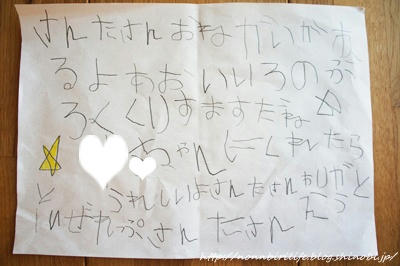 さんたさんおねがいがあ
るよあおいいろのぶ
ろっくくりすますだね
ちゃんにくれたら
うれしいよさんたさんありがと
う
ぷれぜんと
さんたさん
http://nonnbirilife.blog.shinobi.jp/